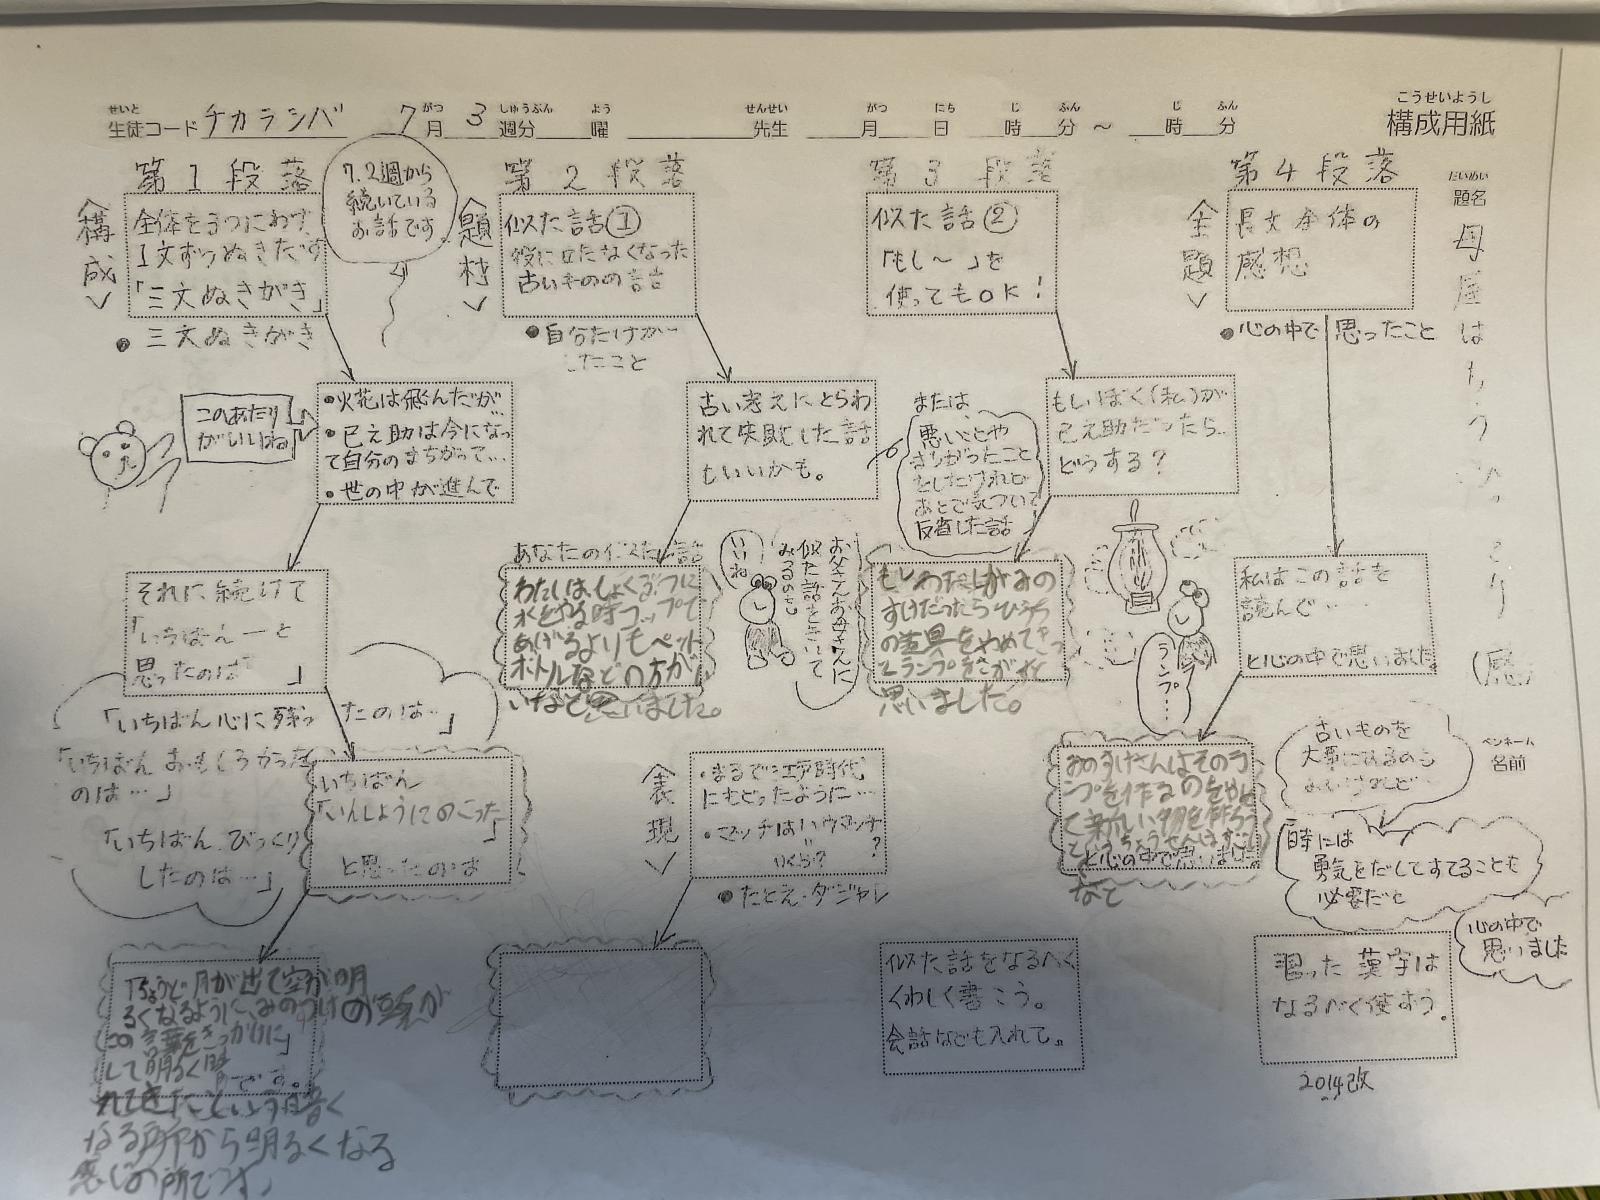 こうせいようし
構成用紙
せいと がつ しゅうぶん よう せんせい がつ にち じ ふん じ ふん
生徒コード チカラシバ 7月 3週分 曜 先生 月 日 時 分 ～ 時 分
だいめい
題名
母屋はもう
ペンネーム
名前
第1段落
＜構成＞
全体を3つにわけ
1文ずつぬきだす
「三文ぬきがき」
●三文ぬきがき
7.2週から
続いている
お話です
このあたり
がいいね
・火花は飛んだが、
・巳之助は今になっ
て自分のまちがって…
・世の中が進んで
それに続けて
「いちばん―と
思ったのは 」
「いちばん心に残ったのは…」
「いちばんおもしろかった
のは…」
「いちばん、びっくり
したのは…」
いちばん
「いんしょうにのこった
」
と思ったのは
「ちょうど月が出て空が明
るくなるように、みのすけの心が
この言葉をきっかけに」
して明るく
です。
れてきたという暗く
なる所から明るくなる
感じの所です。
第2段落
＜題材＞
似た話①
役に立たなくなった
古いものの話
●自分だけが〜
したこと
古い考えにとらわ
れて失敗した話
もいいかも。
または、
悪いことや
としたけれど
あとで気づいて
反省した話
あなたの似た話
わたしは、しょくぶつに
水をやる時コップで
あげるよりもペット
ボトルなどの方がい
いなと思いました。
いいね
お父さんお母さんに
似た話をきいて
みるのも
＜表現＞
・まるで江戸時代
にもどったように…
・マッチはハウマッチ
＝
いくら？
●たとえ・ダジャレ
第3段落
似た話②
「もし〜」を
使ってもOK！
もしぼく(私)が
巳之助だったら…
どうする？
もしわたしがみの
すけだったらひ打ち
の道具をやめてきっ
とランプをさがすと
思いました。
ランプ…
似た話をなるべく
くわしく書こう。
会話なども入れて。
第4段落
＜主題＞
長文全体の
感想
●心の中で思ったこと
私はこの話を
読んで……
と心の中で思いました。
みのすけさんはそのラ
ンプを作るのをやめ
て新しい物を作ろう
というちょうせんはすごい
なと
と心の中で思いました。
古いものを
大事にするのも
よいけれど…
時には
勇気をだしてすてることも
必要だと
心の中で
思いました
習った漢字は
なるべく使おう。
2014改